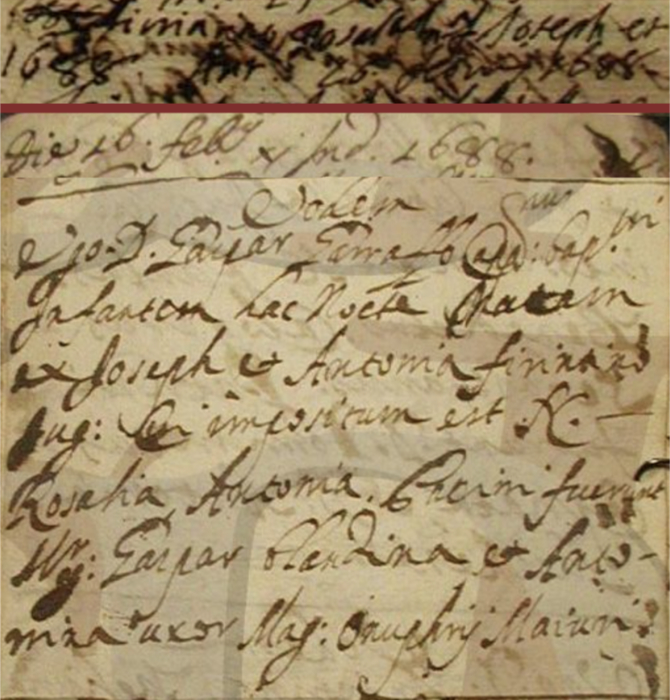 Firinanno Rosalia Joseph et
1688 Ant. 26 febr. 1688
Die 26. feb.ry xj Ind. 1688.
Eodem
Ego D. Gaspar Garraffo Cap: bap.
Infantem hac Nocte Natam
ex Joseph et Antonia firinano
Jug: Cui impositum est N. —
Rosalia Antonia. Patrini fuerunt
Mr: Gaspar blandina et Anto-
nina uxor Mag: Onuphrij Maiuri.